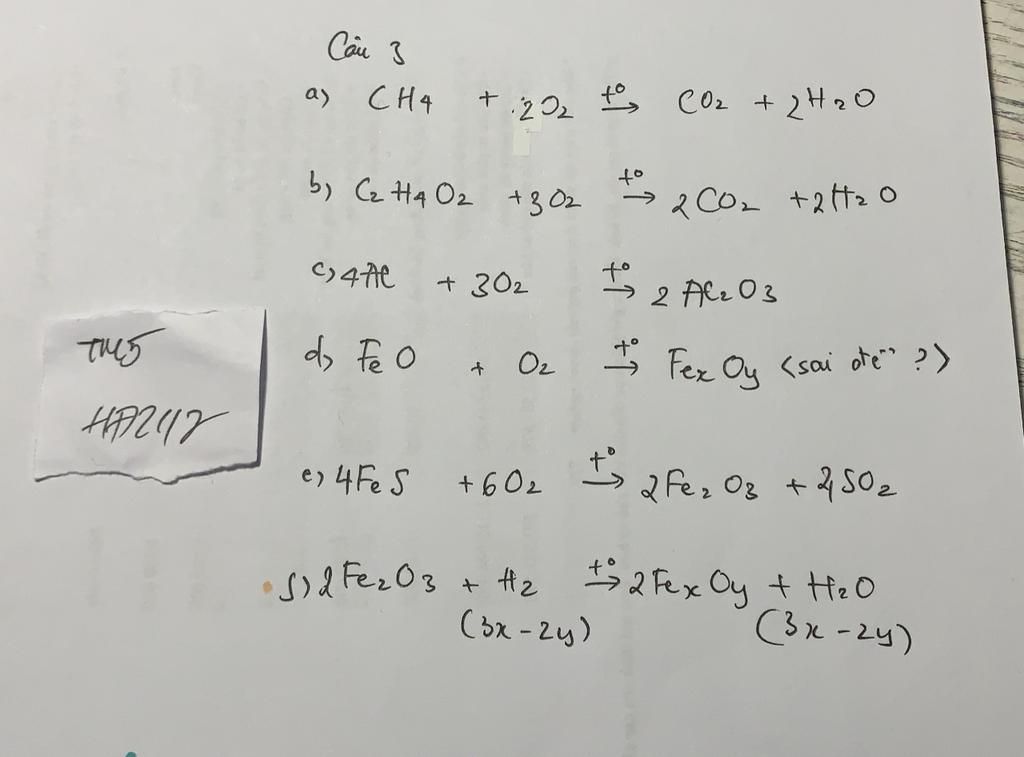 Câu 3
a) CH4 + 2O2 t°→ CO2 + 2H2O
b) C2H4O2 + 3O2 t°→ 2CO2 + 2H2O
c) 4Al + 3O2 t°→ 2Al2O3
d) FeO + O2 t°→ FexOy (sai đề ?)
e) 4FeS + 6O2 t°→ 2Fe2O3 + SO2
f) 2Fe2O3 + H2 t°→ 2FexOy + H2O
(3x-2y) (3x-2y)